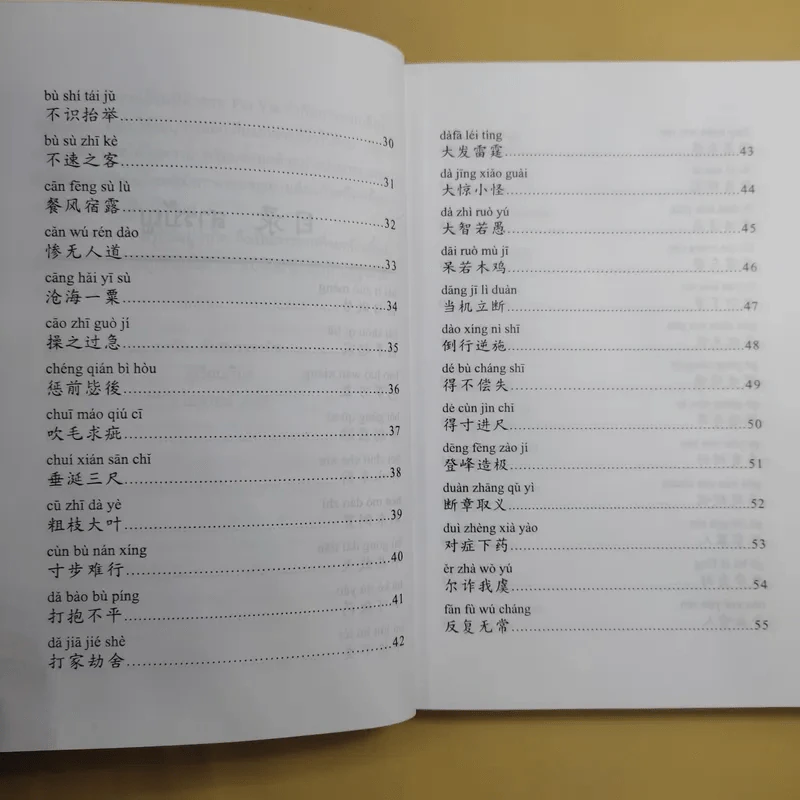 bù shí tái jǔ
不识抬举 30
bù sù zhī kè
不速之客 31
cān fēng sù lù
餐风宿露 32
cǎn wú rén dào
惨无人道 33
cāng hǎi yī sù
沧海一粟 34
cāo zhī guò jí
操之过急 35
chéng qián bì hòu
惩前毖後 36
chuī máo qiú cī
吹毛求疵 37
chuí xián sān chǐ
垂涎三尺 38
cū zhī dà yè
粗枝大叶 39
cùn bù nán xíng
寸步难行 40
dǎ bào bù píng
打抱不平 41
dǎ jiā jié shè
打家劫舍 42
dàfā léi tíng
大发雷霆 43
dà jīng xiǎo guài
大惊小怪 44
dà zhì ruò yú
大智若愚 45
dāi ruò mù jī
呆若木鸡 46
dāng jī lì duàn
当机立断 47
dào xíng nì shī
倒行逆施 48
dé bù cháng shī
得不偿失 49
dé cùn jìn chǐ
得寸进尺 50
dēng fēng zào jí
登峰造极 51
duàn zhāng qǔ yì
断章取义 52
duì zhèng xià yào
对症下药 53
ěr zhà wǒ yú
尔诈我虞 54
fǎn fù wú cháng
反复无常 55